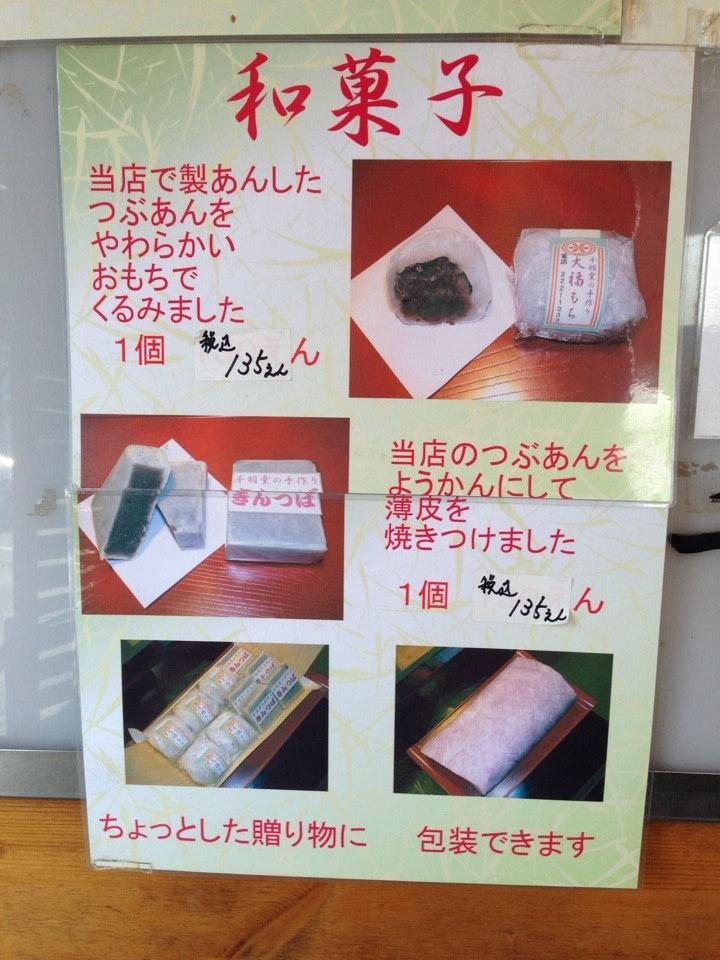 和菓子
当店で製あんした
つぶあんを
やわらかい
おもちで
くるみました
1個 税込135えん ん
千羽堂の手作り
大福もち
電話
千羽堂の手作り
きんつば
当店のつぶあんを
ようかんにして
薄皮を
焼きつけました
1個 税込135えん ん
きんつば
きんつば
ちょっとした贈り物に
包装できます